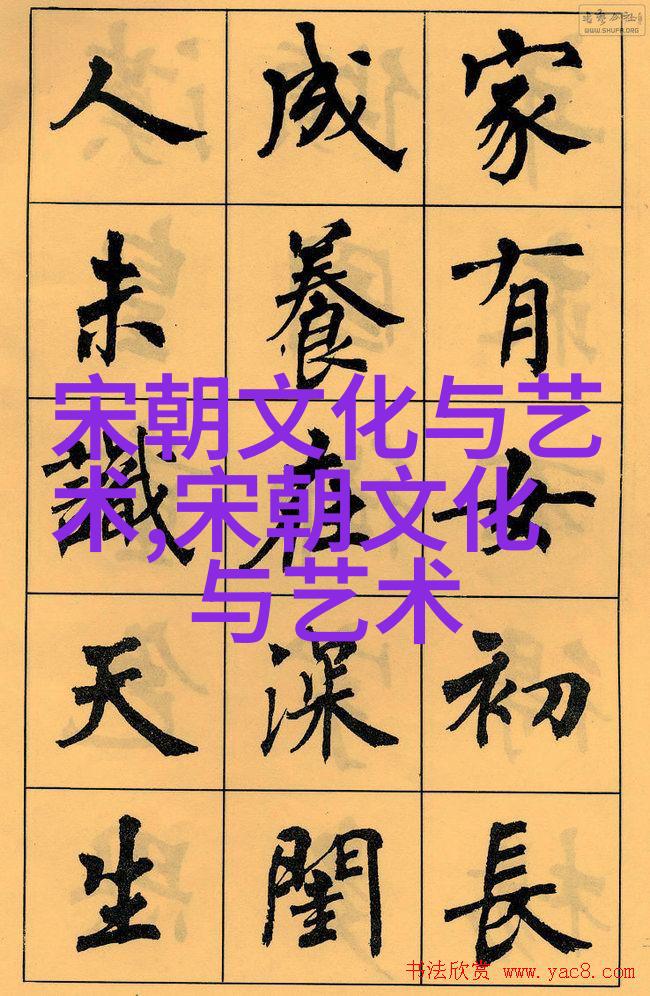 WWW.SHUFA.ORG
家有女初長
成養在深閨
人未識天生
宋朝文化与艺
术,宋朝文化
与艺术
书法欣赏 www.yac8.com